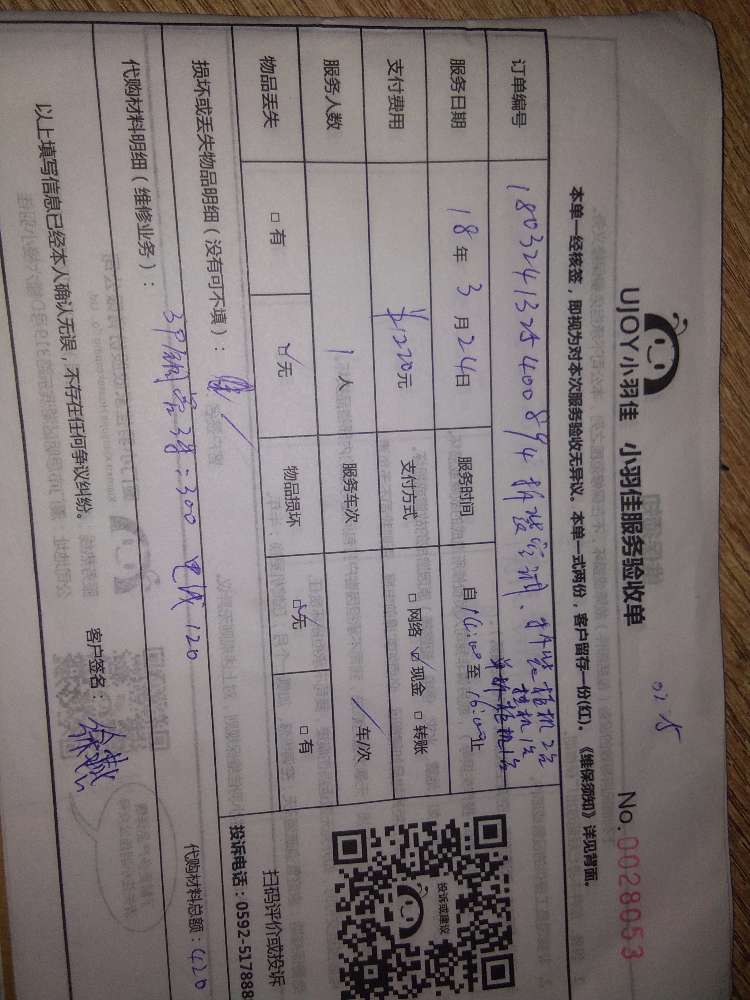 UJOY小羽佳 小羽佳服务验收单
0285
No.0028053
本单一经核签，即视为对本次服务验收无异议。本单一式两份，客户留存一份(红)。《维保须知》详见背面。
订单编号 1803241325400894 拆装空调、
挂机2台
挂机1台
单拆挂机1台
服务日期 18年3月24日 服务时间 自14:00至16:00止
支付费用 ¥1220元 支付方式 □网络 ☑现金 □转账
服务人数 1人 服务车次 / 车/次
物品丢失 □有 ☑无 物品损坏 ☑无 □有
投诉或建议
扫码评价或投诉
投诉电话：0592-517888
损坏或丢失物品明细（没有可不填）： /
代购材料明细（维修业务）： 3P铜管3米：300 电线120
代购材料总额：420
以上填写信息已经本人确认无误，不存在任何争议纠纷。
客户签名：